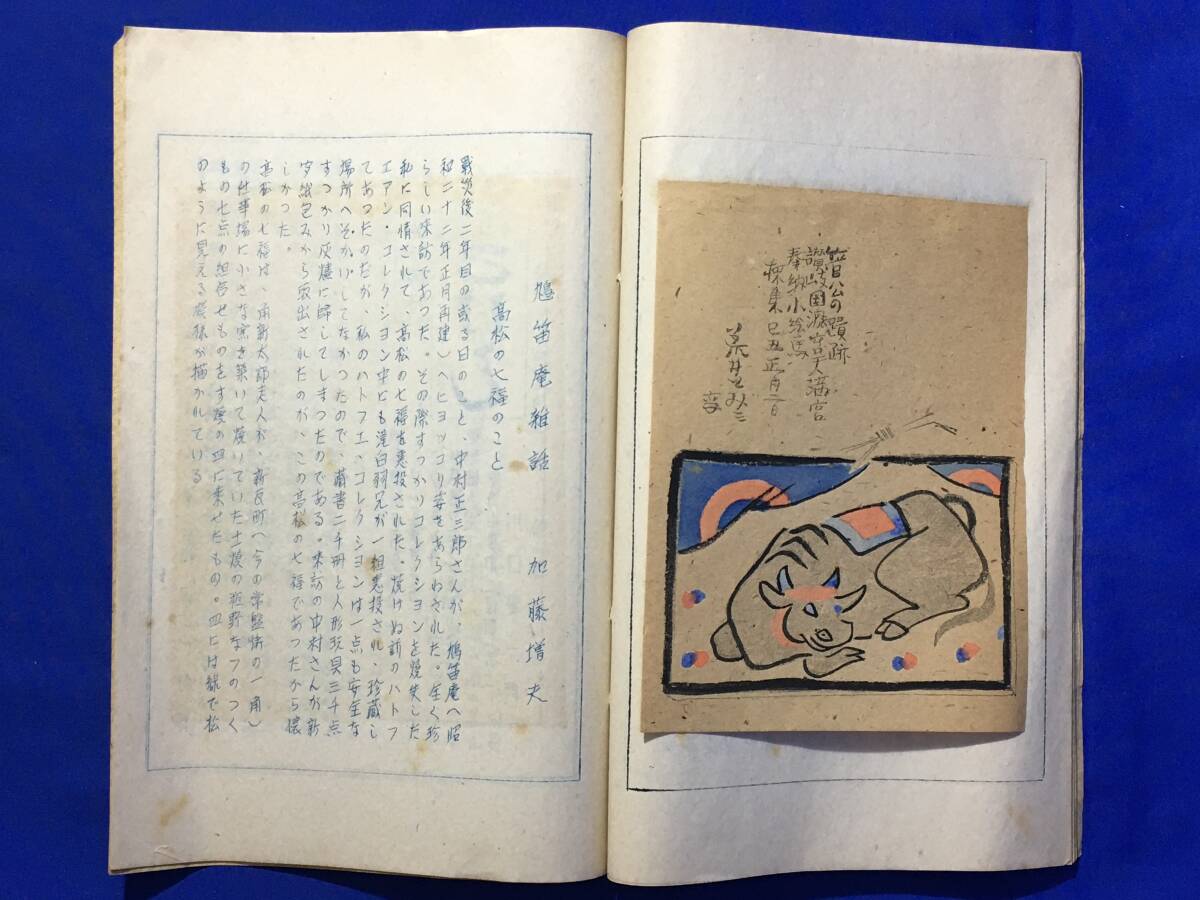 菅公の蹟跡
讃岐国滝宮天満宮
奉納小絵馬
採集 己丑正月二日
荒井とみ三
写
鳩笛庵雑話 加藤増夫
高松の七福のこと
戦災後二年目の或る日のこと、中村正三郎さんが、鳩笛庵へ(昭
和二十二年正月再建)ヘヒヨツコリ姿をあらわされた。全く珍
らしい来訪であつた。その際すつかりコレクシヨンを焼失した
私に同情されて、高松の七福を恵投された。焼けぬ前のハトフ
エアン・コレクシヨン中にも滝白羽兄が一組恵投され、珍蔵し
てあつたのだが、私のハトフエ、コレクシヨンは一点も安全な
場所へそかいしてなかつたので、蔵書二千冊と人形玩具三千点
すつかり灰燼に帰してしまつたのである。来訪の中村さんが新
聞紙包みから取出されたのが、この高松の七福であつたから懐
しかつた。
高松の七福は、角新太郎夫人が、新瓦町(今の常盤街の一角)
の仕事場に小さな窯を築いて焼いていた土焼の粗野なフのつく
もの七点の組合せものを素焼の皿に乗せたもの。皿には緑で松
のように見える模様が描かれている